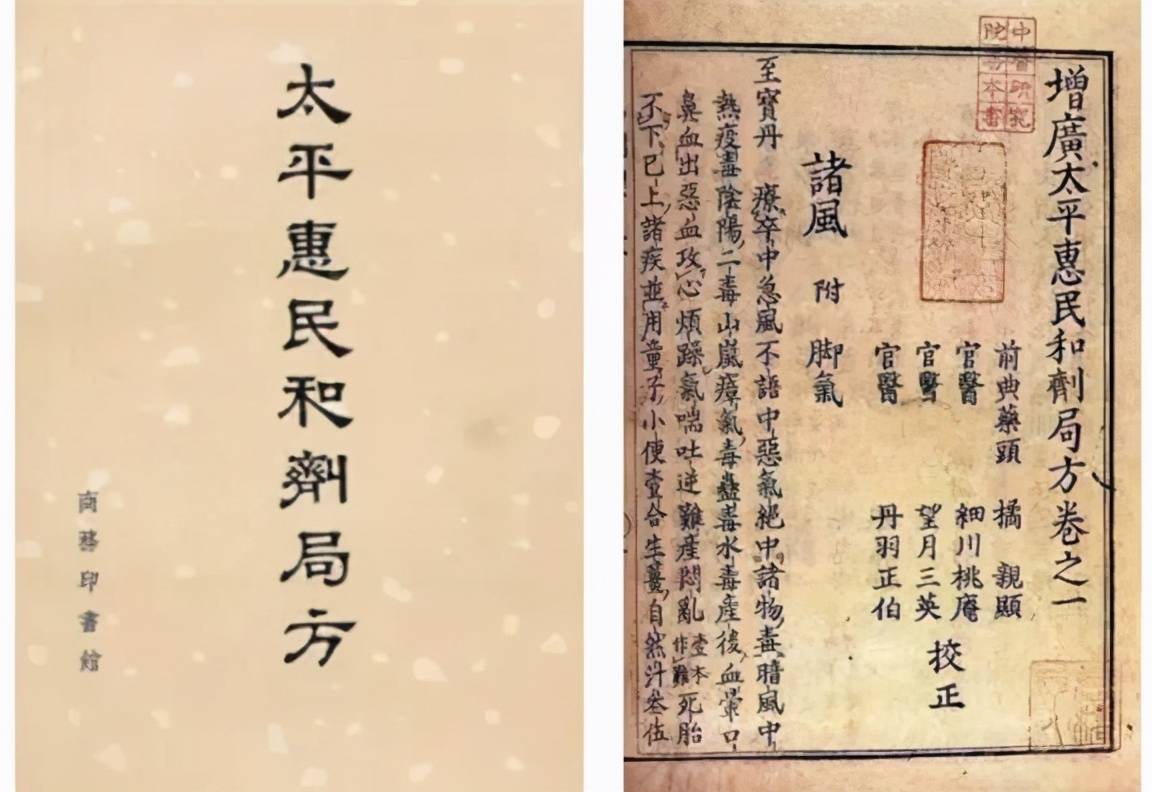 太平惠民和劑局方
商務印書館
中醫研究
院善本書
增廣太平惠民和劑局方卷之一
前典藥頭 橘 親顯
官醫 細川桃庵
官醫 望月三英
官醫 丹羽正伯
挍正
諸風 附 脚氣
至寳丹 療卒中急風不語中惡氣絶中諸物毒暗風中
熱疫毒陰陽二毒山嵐瘴氣毒蠱毒水毒產後血暈口
鼻血出惡血攻心煩躁氣喘吐逆難產悶亂 壹本作難 死胎
不下已上諸疾並用童子小便壹合生薑自然汁叁伍